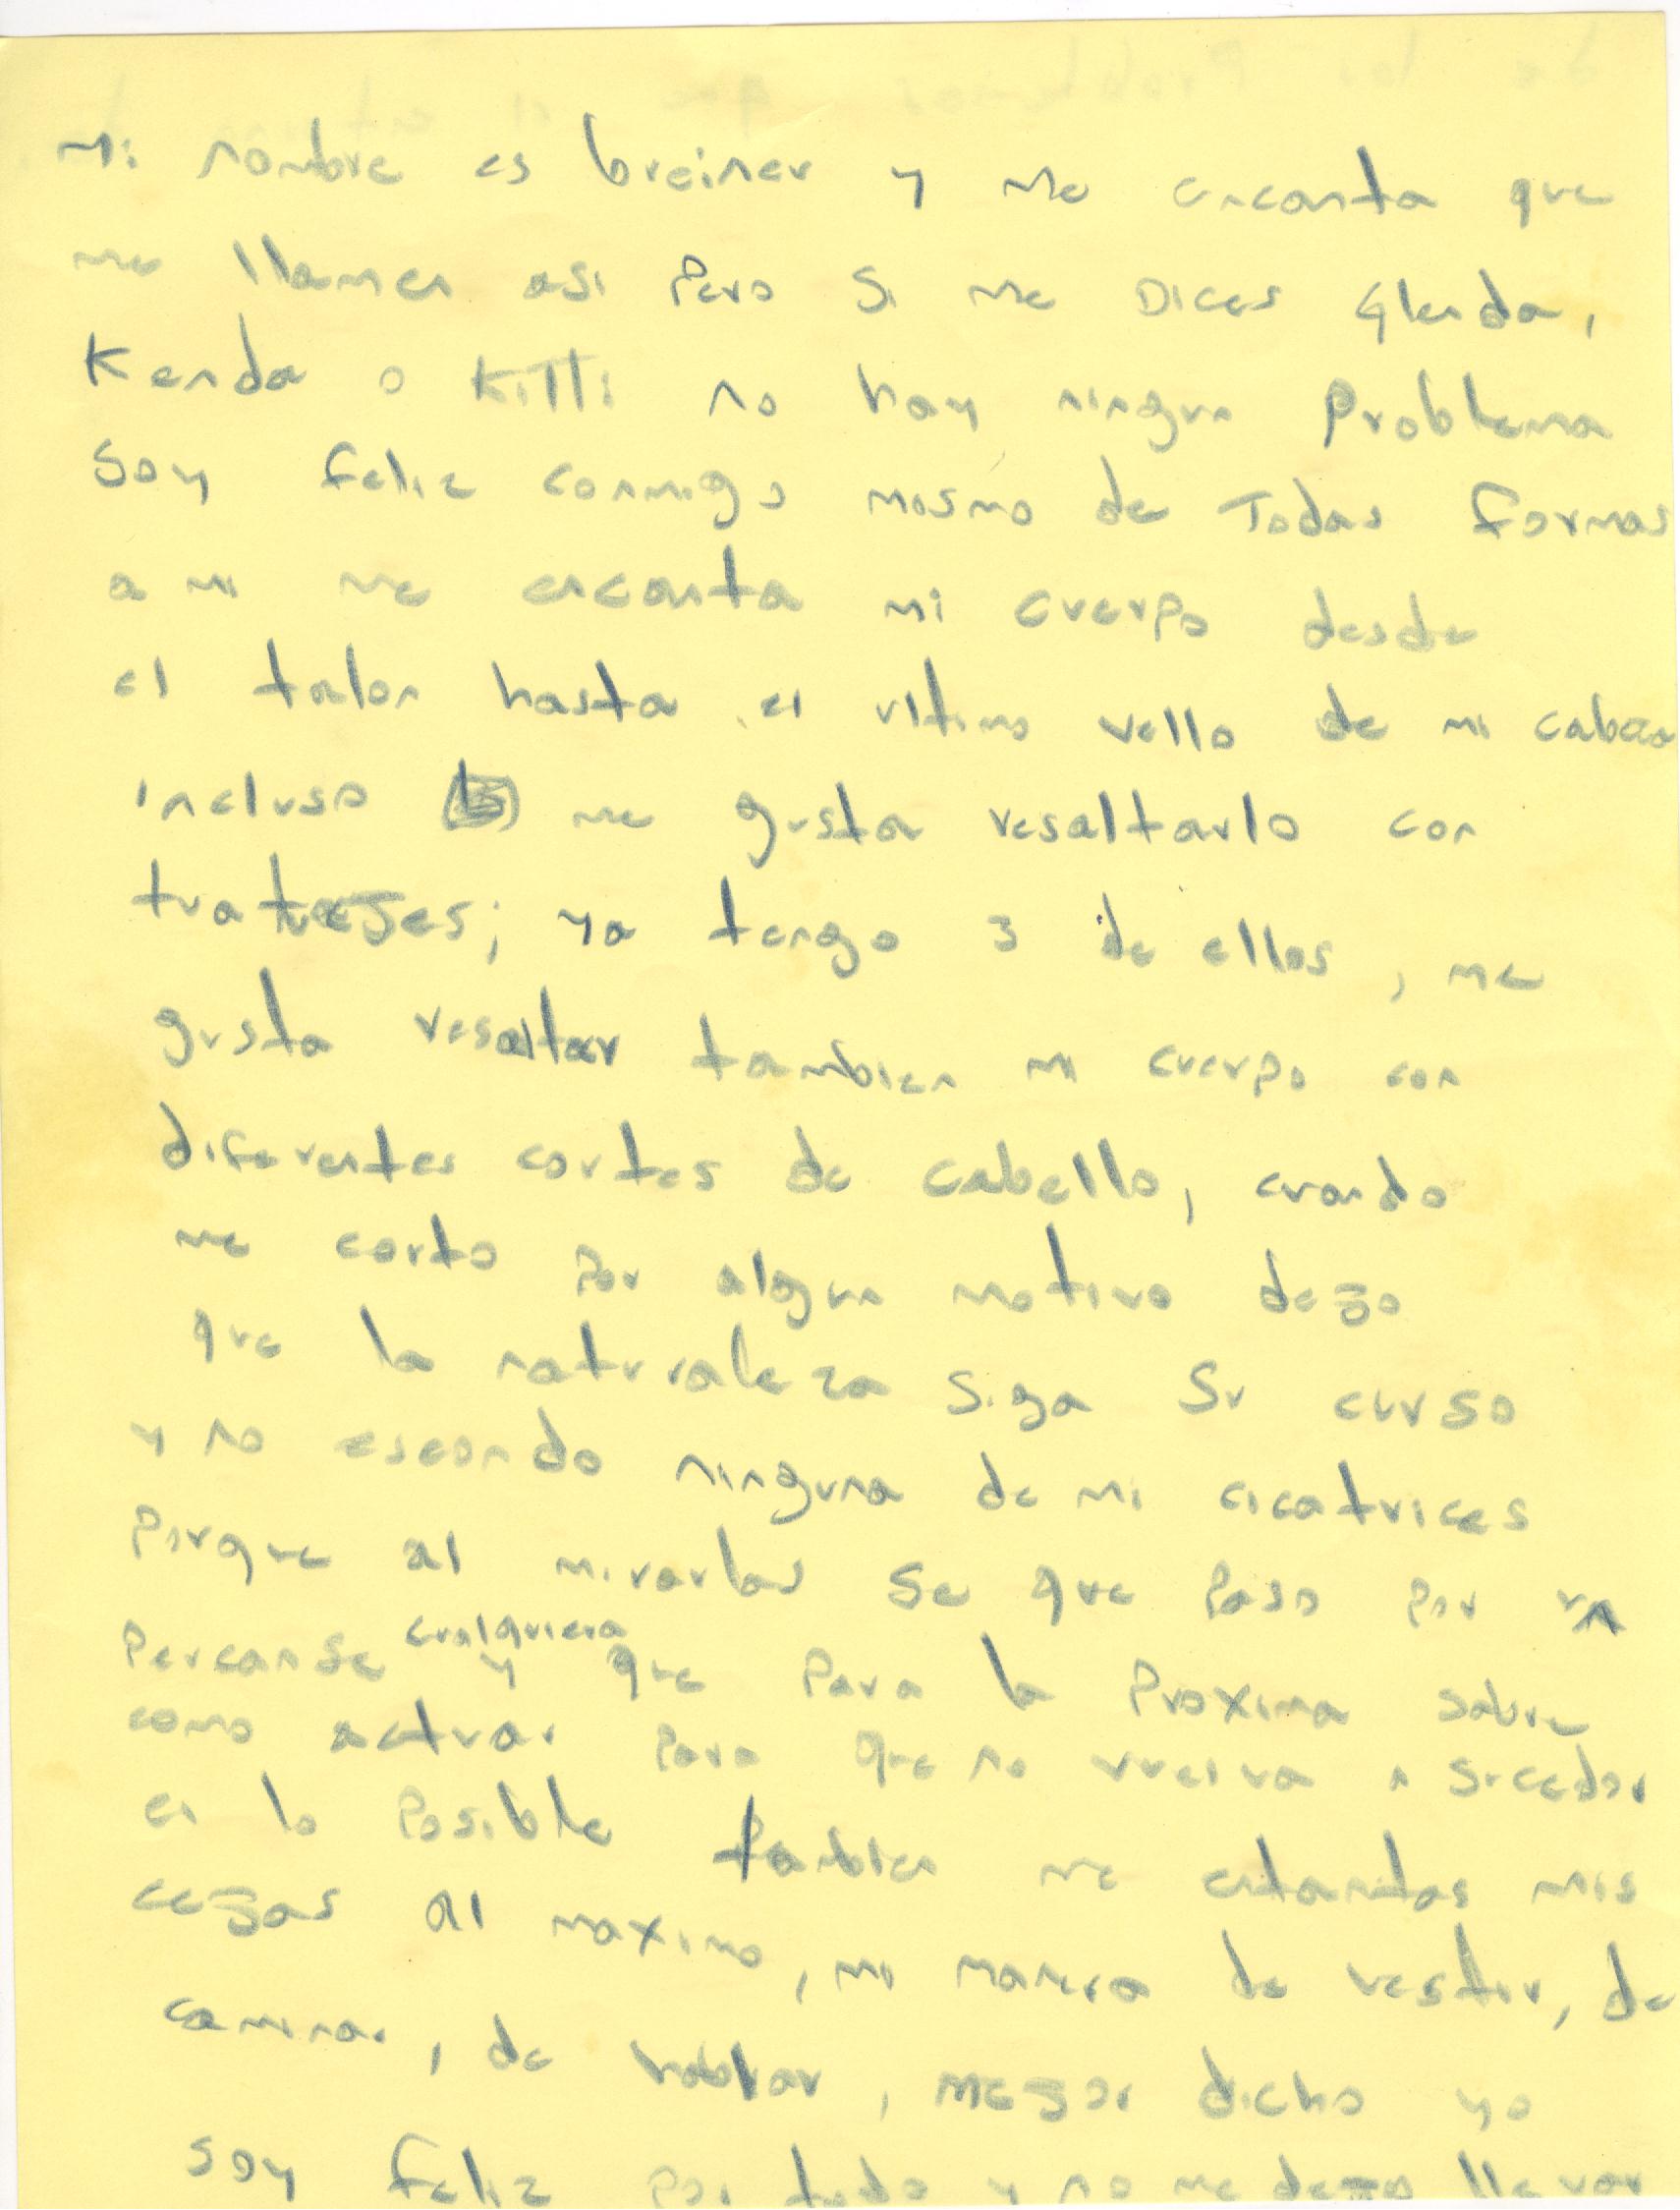 mi nombre es breiner y me encanta que
me llamen asi Pero Si me Dices Glenda,
Kenda o KiTTi no hay ningun Problema
Soy feliz conmigo mismo de Todas formas
a mi me encanta mi cuerpo desde
el talon hasta el ultimo vello de mi cabeza
incluso me gusta resaltarlo con
tratuajes; ya tengo 3 de ellos, me
gusta resaltar tambien mi cuerpo con
diferentes cortes de cabello, cuando
me corto Por algun motivo dejo
que la naturaleza Siga Su curso
y no escondo ninguna de mi cicatrices
Porque al mirarlas Se que Paso Por un
Percanse cualquiera y que Para la Proxima Sabre
como actuar Para que no vuelva a Suceder
en lo Posible tambien me entantas mis
cejas al maximo, mi manera de vestir, de
caminar, de hablar, mejor dicho yo
Soy feliz Por todo y no me dejo llevar